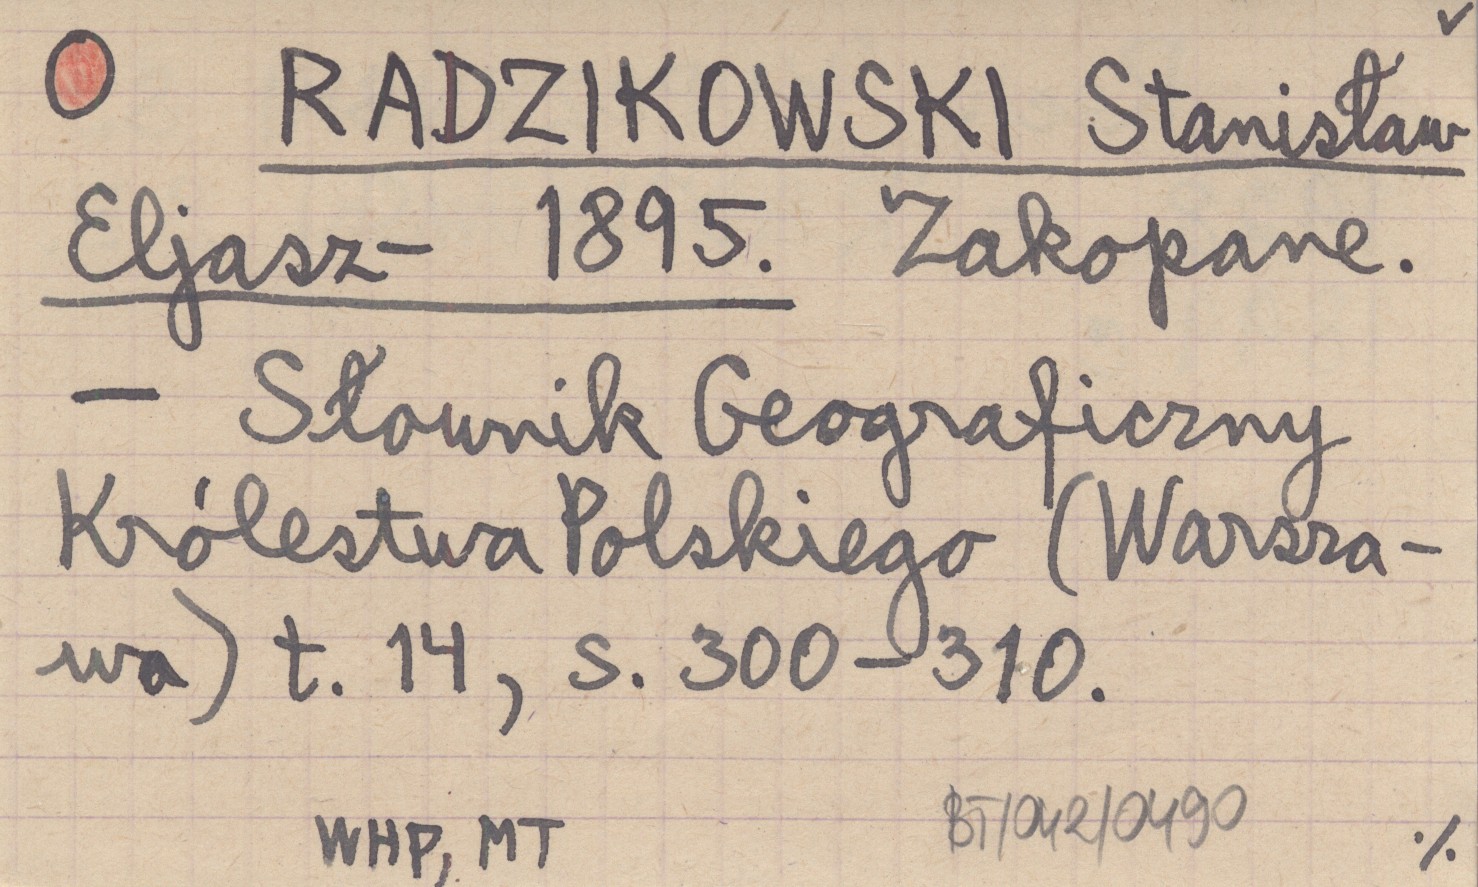 RADZIKOWSKI Stanisław
Eljasz- 1895. Zakopane.
— Słownik Geograficzny
Królestwa Polskiego (Warsza-
wa) t. 14, s. 300-310.
WHP, MT
BT/042/0490
./.